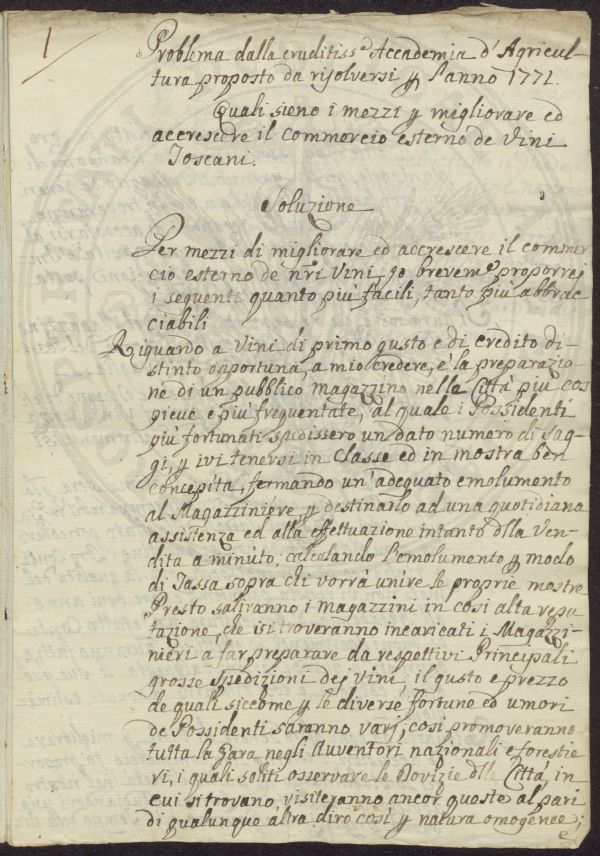 1
Problema dalla eruditiss.ª Accademia d'Agricul-
tura proposto da risolversi p l'anno 1771.
Quali sieno i mezzi p migliorare ed
accrescere il commercio esterno de Vini
Toscani.
Soluzione
Per mezzi di migliorare ed accrescere il commer
cio esterno de nri Vini, io brevem.e proporrei
i seguenti quanto più facili, tanto più abbrac
ciabili
Riguardo a Vini di primo gusto e di credito di-
stinto opportuna, a mio credere, è la preparazio-
ne di un pubblico magazzino nelle Città più cos
picue e più frequentate, al quale i Possidenti
più fortunati spedissero un dato numero di sag-
gi, p ivi tenersi in Classe ed in mostra ben
concepita, fermando un'adequato emolumento
al Magazziniere p destinarlo ad una quotidiana
assistenza ed alla effettuazione intanto dlla Ven-
dita a minuto; calcolando l'emolumento p modo
di Tassa sopra chi vorrà unire le proprie mostre
Presto saliranno i magazzini in così alta repu
tazione, che si troveranno incaricati i Magazzi-
nieri a far preparare da respettivi Principali
grosse spedizioni dei Vini, il gusto e prezzo
de quali siccome p le diverse fortune ed umori
de Possidenti saranno varj, così promoveranno
tutta la gara negli Avventori nazionali e forestie
ri, i quali soliti osservare le Dovizie dlle Città, in
cui si trovano, visiteranno ancor queste al pari
di qualunque altra dirò così p natura omogenee;
e